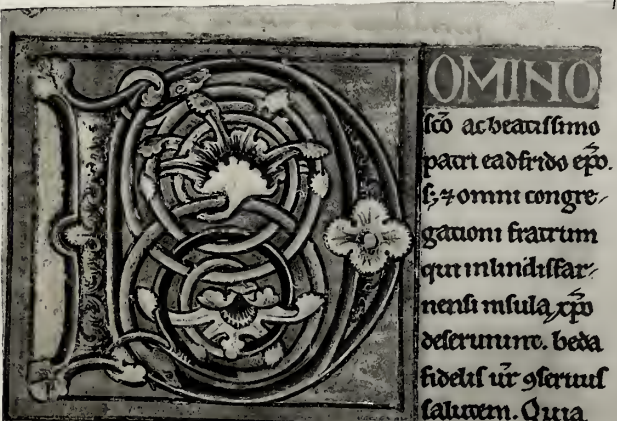 DOMINO
sc̄o ac beatissimo
patri eadfrido ep̄o.
s; ⁊ omni congre-
gationi fratrum
qui inlindisfar-
nensi insula, xp̄o
deseruiunt. beda
fidelis ur̄ ꝯseruus
salutem. Quia